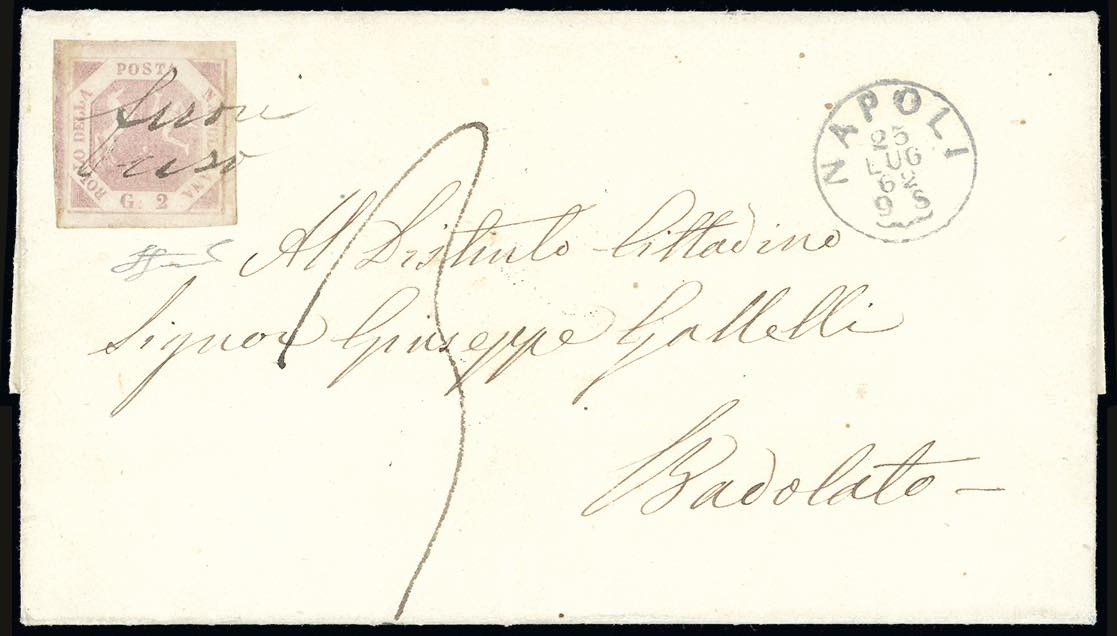 POSTA NAPOLETANA
BOLLO DELLA
G. 2
fuori
d'uso
NAPOLI
25
LUG
62
9 S
Al Distinto Cittadino
Signor Giuseppe Gallelli
Badolato